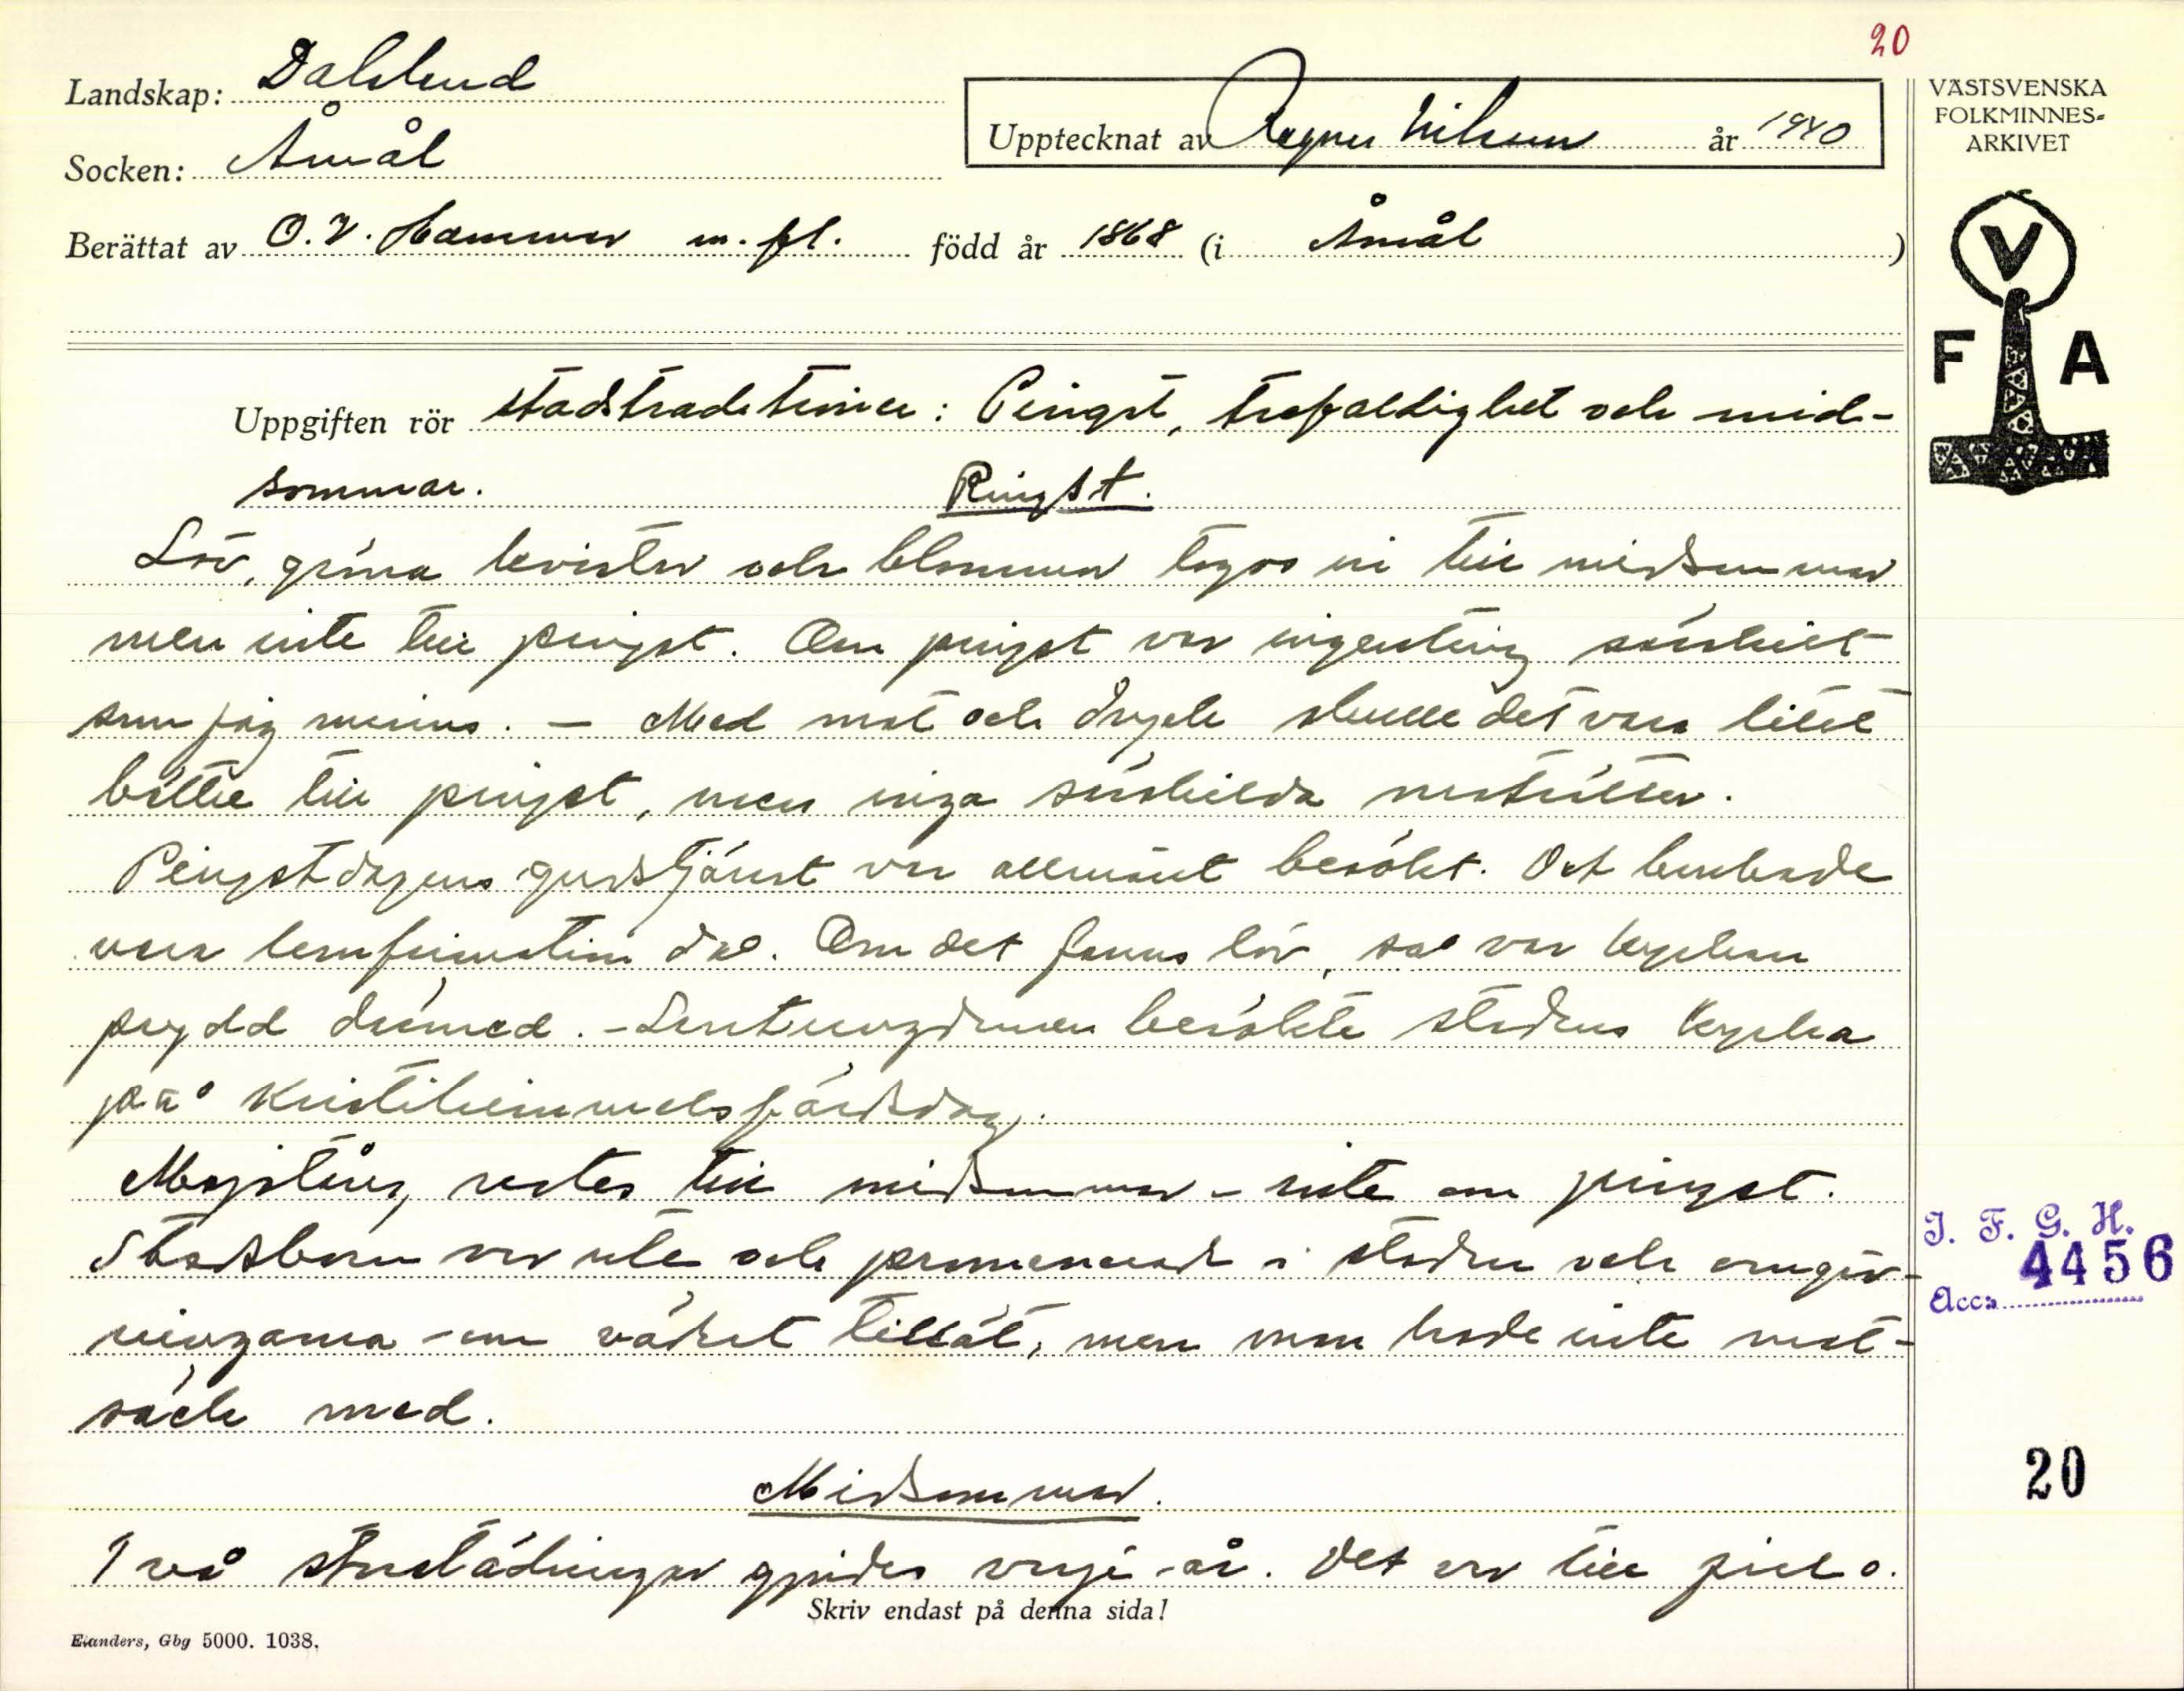 20
Landskap: Dalsland
Socken: Åmål
Upptecknat av Ragnar Nilsson år 1940
Berättat av O. V. Hammar m. fl. född år 1868 (i Åmål)
VÄSTSVENSKA
FOLKMINNES-
ARKIVET
V
F A
Uppgiften rör stadstraditioner: Pingst, trefaldighet och mid-
sommar. Pingst.
Löv, gröna kvistar och blommor togos in till midsommar
men inte till pingst. Om pingst var ingenting särskilt
som jag minns. – Med mat och dryck skulle det vara litet
bättre till pingst, men inga särskilda maträtter.
Pingstdagens gudstjänst var allmänt besökt. Det brukade
vara konfirmation då. Om det fanns löv, så var kyrkan
prydd därmed. – Lantungdomen besökte stadens kyrka
på Kristihimmelsfärdsdag.
Majstång restes till midsommar – inte om pingst.
Stadsborna var ute och promenerade i staden och omgiv-
ningarna – om vädret tillät, men man hade inte mat-
säck med.
Midsommar.
Två storstädningar gjordes varje år. Det var till jul o.
Skriv endast på denna sida!
Elanders, Gbg 5000. 1038.
I. F. G. H.
4456
Acc:
20